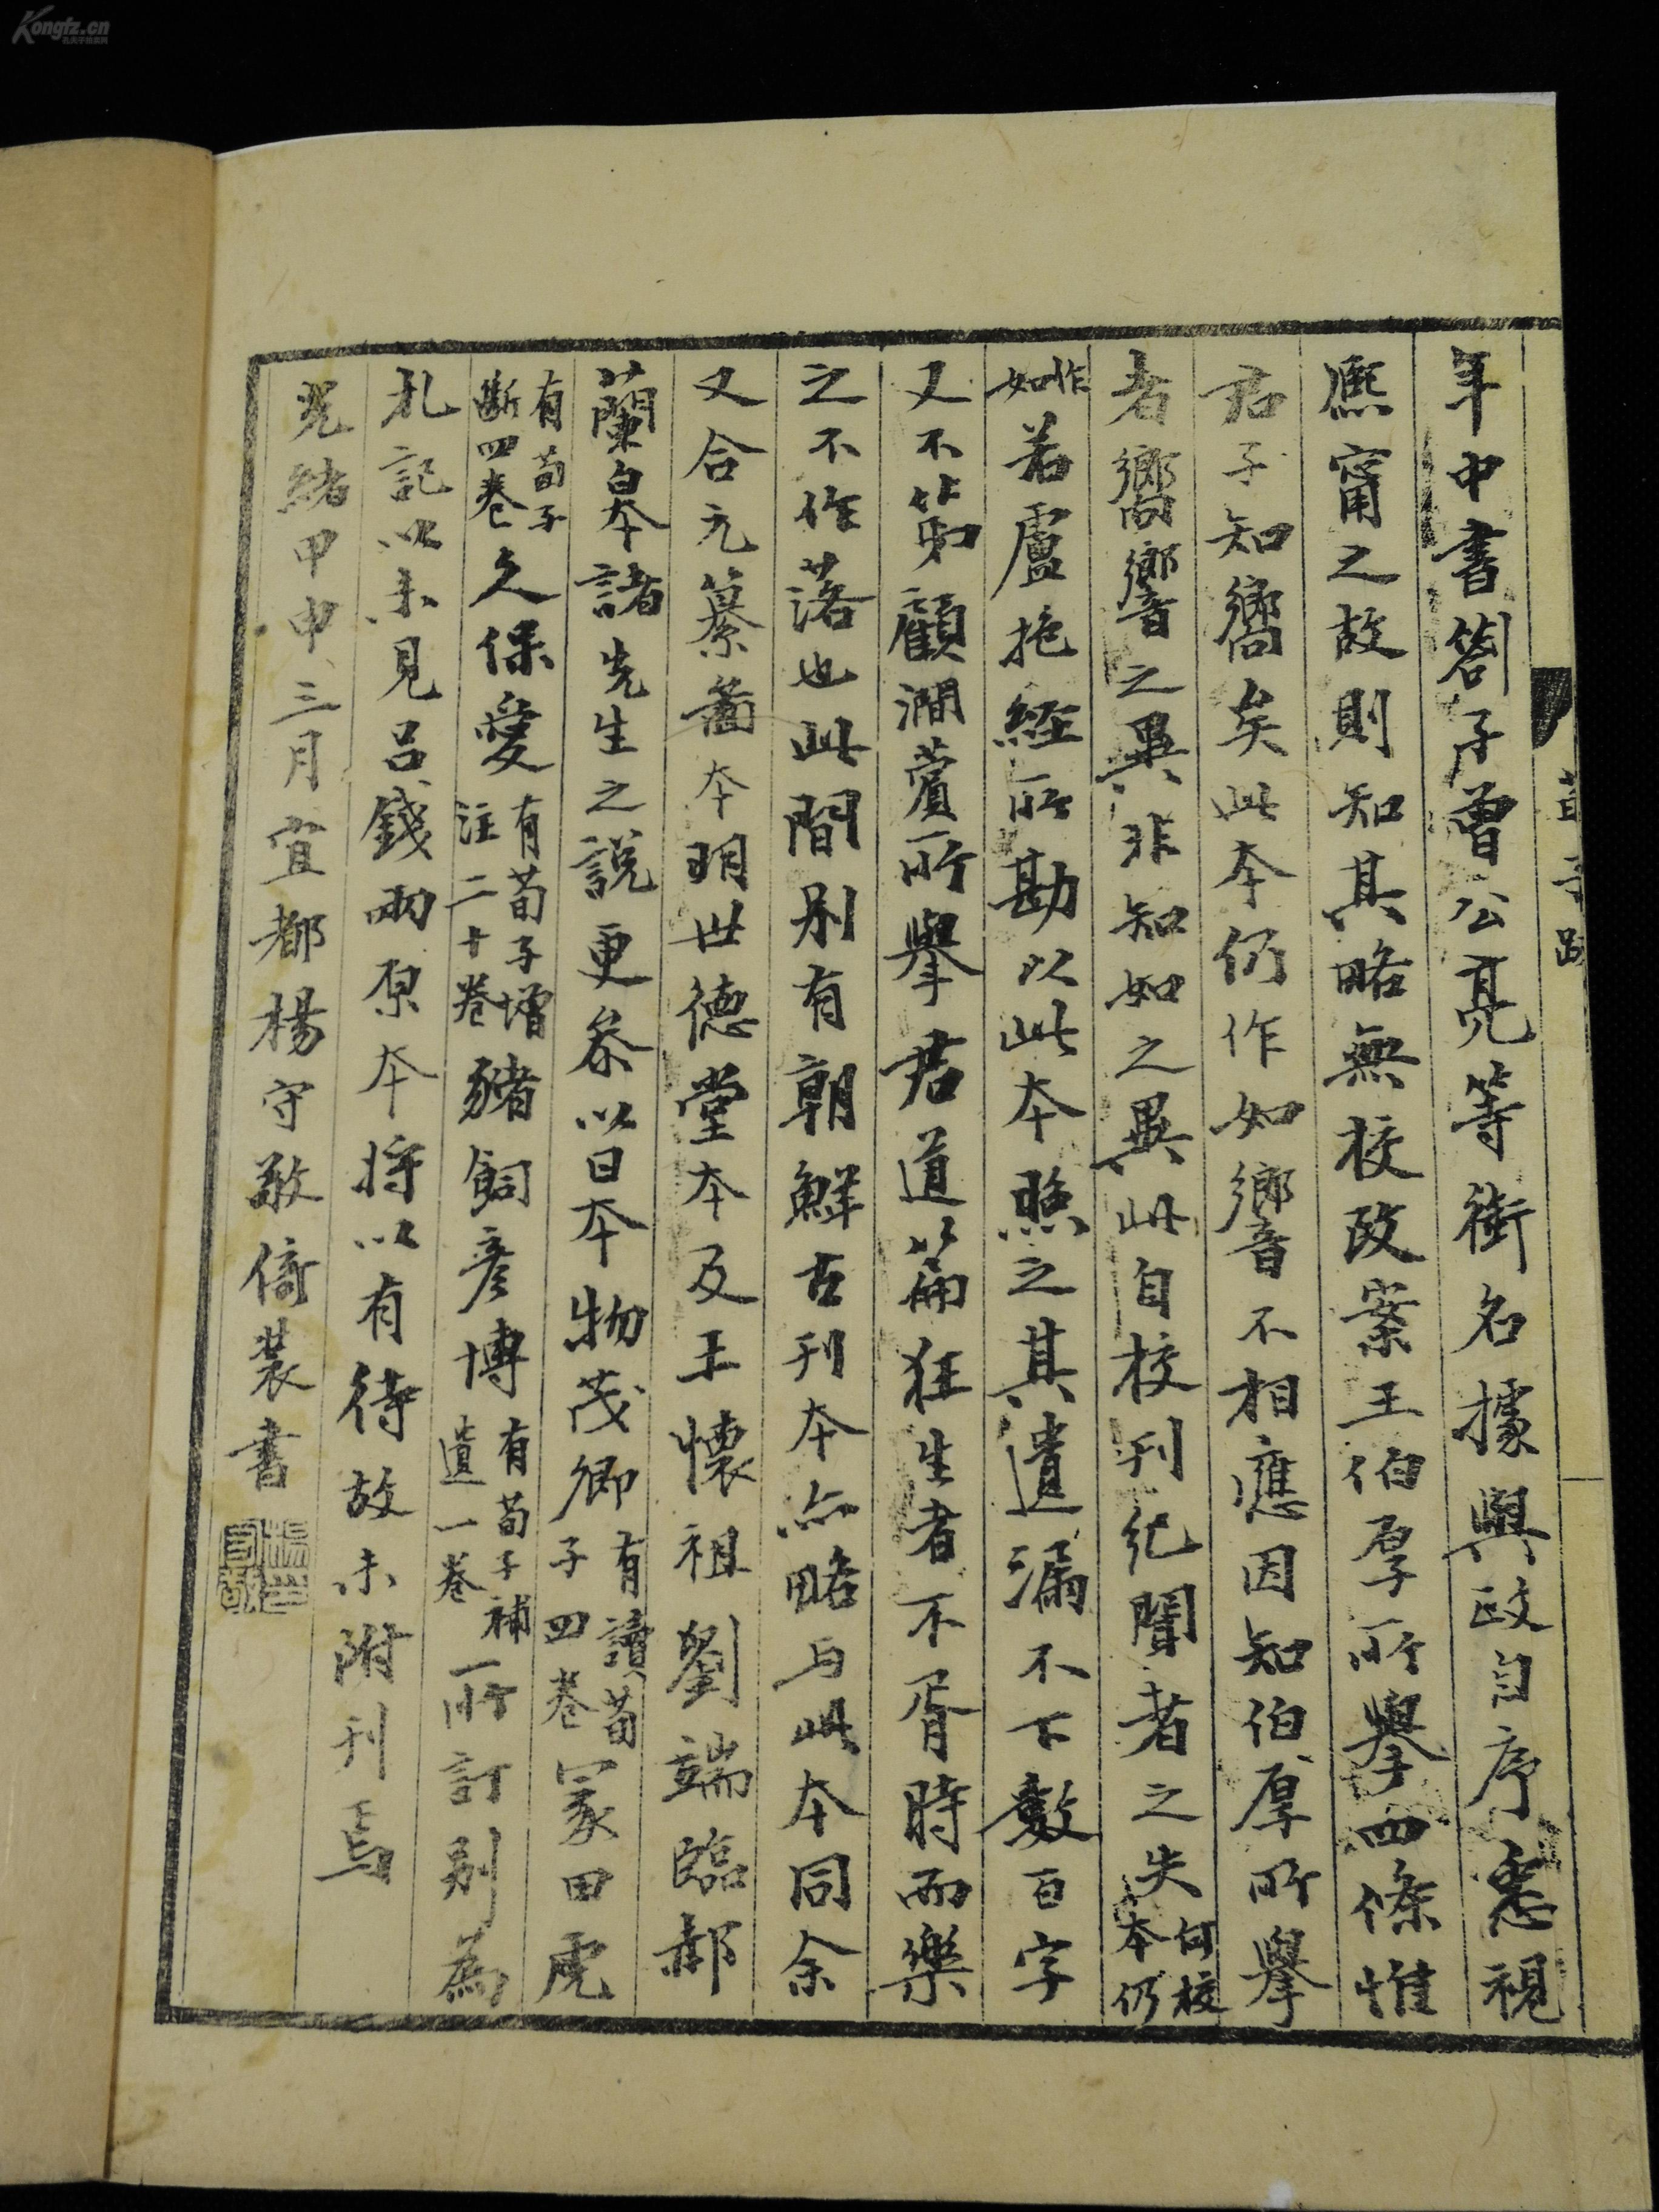 年中書劄子曾公亮等銜名據與政自序悉視
熙甯之故則知其略無校改案王伯厚所擧四條惟
君子知嚮矣此本仍作如響不相應因知伯厚所擧
者嚮響之異非知如之異此自校刊紀聞者之失何校本仍
作如若盧抱經所勘以此本照之其遺漏不下數百字
又不第顧澗薲所擧君道篇狂生者不胥時而樂
之不作落也此間別有朝鮮古刊本亦略与此本同余
又合元纂圖本明世德堂本及王懷祖劉端臨郝
蘭皋諸先生之說更叅以日本物茂卿有讀荀子四卷冢田虎
有荀子斷四卷久保愛有荀子增注二十卷豬飼彦博有荀子補遺一卷所訂別為
札記以未見呂錢兩原本将以有待故未附刊焉
光緒甲申三月宜都楊守敬倚裝書
楊守敬
荀子跋
Kongfz.cn